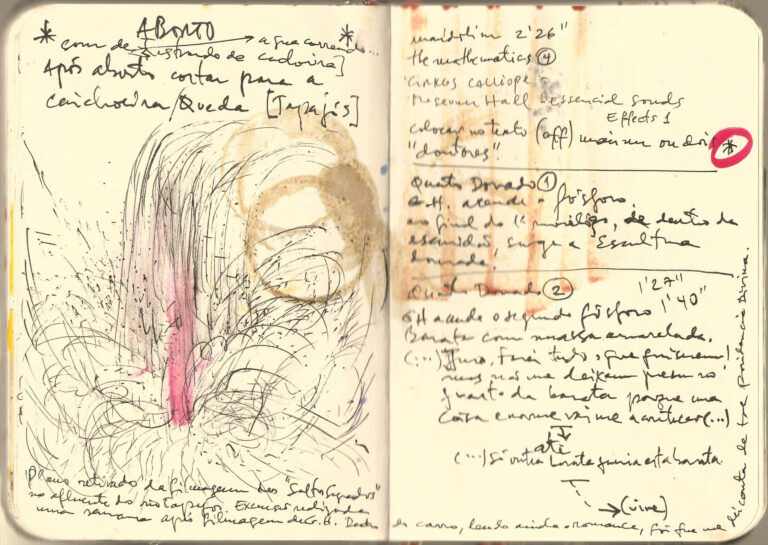 * ABORTO *
com de água correndo...
Após aborto cortar para a
cachoeira/Queda [Tapajós]
Plano retirado da filmagem dos "Saltos Sagrados"
no afluente do rio Tapajós. Excursão realizada
uma semana após filmagem de G.H. Dentro
mandolim 2'26"
the mathematics ④
Circus Calliope
Museum Hall Essencial Sounds
Effects 1
colocar no texto (off) mais um ou dois
"doutores". *
Quarto Dourado ①
G.H. acende o fósforo.
ao final do de dentro da
escuridão, surge a Escultura
dourada.
Quarto Dourado ② 1'27"
GH acende o segundo fósforo 1'40"
Barata com massa amarelada.
(...) Juro, farei tudo o que quiserem!
mas não me deixem presa no
quarto da barata porque uma
coisa enorme vai me acontecer (...)
até
(...) Só outra barata queria esta barata.
→ (vive)
do carro, lendo ainda o romance, foi que me
dei conta de tre providencia Divina.